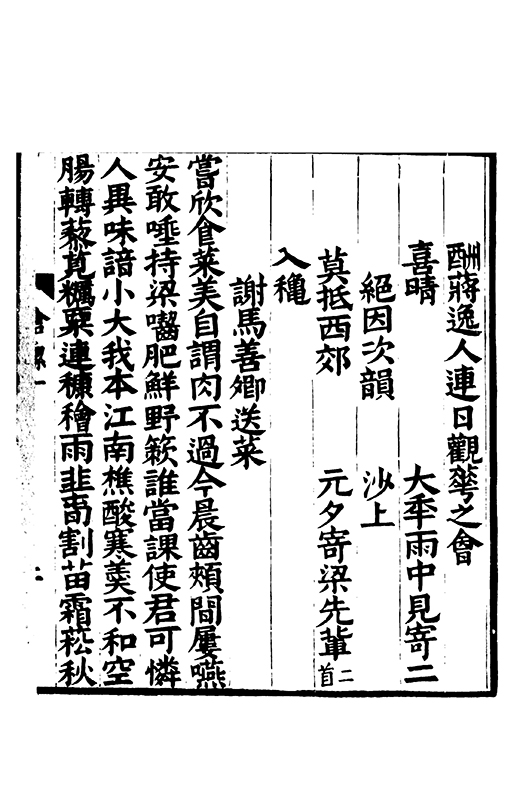 酬蔣逸人連日觀蕚之會
喜晴　大秊雨中見寄二
絕因次韻　沙上
莫抵西郊　元夕寄梁先輩二首
入穐
謝馬善卿送菜
嘗欣食菜美自謂肉不過今晨齒頰間屢嚥
安敢唾持梁囓肥鮮野蔌誰當課使君可憐
人異味諳小大我本江南樵酸寒羹不和空
腸轉藜莧糲粟連糠稽雨韭剪割苗霜菘秋